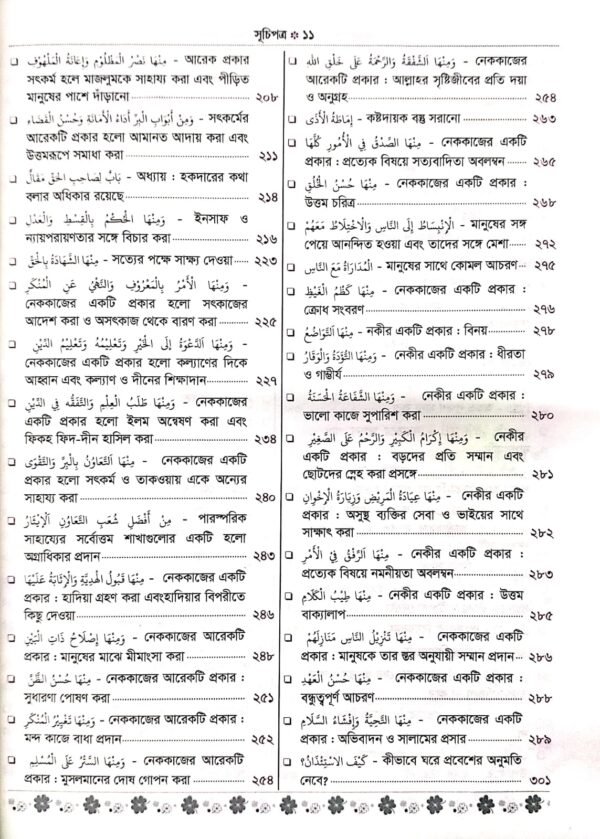 সূচিপত্র ❖ ১১
❏ وَمِنْهَا نَصْرُ الْمَظْلُوْمِ وَإِعَانَةُ الْمَلْهُوْفِ - আরেক প্রকার
সৎকর্ম হলে মাজলুমকে সাহায্য করা এবং পীড়িত
মানুষের পাশে দাঁড়ানো ২০৮
❏ وَمِنْ أَبْوَابِ الْبِرِّ أَدَاءُ الْأَمَانَةِ وَحُسْنُ الْقَضَاءِ - সৎকর্মের
আরেকটি প্রকার হলো আমানত আদায় করা এবং
উত্তমরূপে সমাধা করা ২১১
❏ بَابٌ لِصَاحِبِ الْحَقِّ مَقَالٌ - অধ্যায় : হকদারের কথা
বলার অধিকার রয়েছে ২১৪
❏ وَمِنْهَا الْحُكْمُ بِالْقِسْطِ وَالْعَدْلِ - ইনসাফ ও
ন্যায়পরায়ণতার সঙ্গে বিচার করা ২১৬
❏ مِنْهَا الشَّهَادَةُ بِالْحَقِّ - সত্যের পক্ষে সাক্ষ্য দেওয়া ২২৩
❏ وَمِنْهَا الْأَمْرُ بِالْمَعْرُوْفِ وَالنَّهْيُ عَنِ الْمُنْكَرِ -
নেককাজের একটি প্রকার হলো সৎকাজের
আদেশ করা ও অসৎকাজ থেকে বারণ করা ২২৫
❏ وَمِنْهَا الدَّعْوَةُ إِلَى الْخَيْرِ وَتَعْلِيْمُهُ وَتَعْلِيْمُ الدِّيْنِ -
নেককাজের একটি প্রকার হলো কল্যাণের দিকে
আহ্বান এবং কল্যাণ ও দীনের শিক্ষাদান ২২৭
❏ وَمِنْهَا طَلَبُ الْعِلْمِ وَالتَّفَقُّهُ فِي الدِّيْنِ - নেককাজের
একটি প্রকার হলো ইলম অন্বেষণ করা এবং
ফিকহ ফিদ-দীন হাসিল করা ২৩৪
❏ وَمِنْهَا التَّعَاوُنُ بِالْبِرِّ وَالتَّقْوَى - নেককাজের একটি
প্রকার হলো সৎকর্ম ও তাকওয়ায় একে অন্যের
সাহায্য করা ২৪০
❏ مِنْ أَفْضَلِ شُعَبِ التَّعَاوُنِ الْإِيْثَارُ - পারস্পরিক
সাহায্যের সর্বোত্তম শাখাগুলোর একটি হলো
অগ্রাধিকার প্রদান ২৪৩
❏ مِنْهَا قَبُوْلُ الْهَدِيَّةِ وَالْإِثَابَةُ عَلَيْهَا - নেককাজের একটি
প্রকার : হাদিয়া গ্রহণ করা এবংহাদিয়ার বিপরীতে
কিছু দেওয়া ২৪৬
❏ وَمِنْهَا إِصْلَاحُ ذَاتِ الْبَيْنِ - নেককাজের আরেকটি
প্রকার : মানুষের মাঝে মীমাংসা করা ২৪৮
❏ مِنْهَا حُسْنُ الظَّنِّ - নেককাজের আরেকটি প্রকার :
সুধারণা পোষণ করা ২৫১
❏ وَمِنْهَا تَغْيِيْرُ الْمُنْكَرِ - নেককাজের আরেকটি প্রকার :
মন্দ কাজে বাধা প্রদান ২৫২
❏ وَمِنْهَا السَّتْرُ عَلَى الْمُسْلِمِ - নেককাজের আরেকটি
প্রকার : মুসলমানের দোষ গোপন করা ২৫৪
❏ وَمِنْهَا الشَّفَقَةُ وَالرَّحْمَةُ عَلَى خَلْقِ اللهِ - নেককাজের
আরেকটি প্রকার : আল্লাহর সৃষ্টিজীবের প্রতি দয়া
ও অনুগ্রহ ২৫৪
❏ إِمَاطَةُ الْأَذَى - কষ্টদায়ক বস্তু সরানো ২৬৩
❏ مِنْهَا الصِّدْقُ فِي الْأُمُوْرِ كُلِّهَا - নেককাজের একটি
প্রকার : প্রত্যেক বিষয়ে সত্যবাদিতা অবলম্বন ২৬৫
❏ مِنْهَا حُسْنُ الْخُلُقِ - নেককাজের একটি প্রকার :
উত্তম চরিত্র ২৬৮
❏ الْإِنْبِسَاطُ إِلَى النَّاسِ وَالْاِخْتِلَاطُ مَعَهُمْ - মানুষের সঙ্গ
পেয়ে আনন্দিত হওয়া এবং তাদের সঙ্গে মেশা ২৭২
❏ الْمُدَارَاةُ مَعَ النَّاسِ - মানুষের সাথে কোমল আচরণ ২৭৫
❏ مِنْهَا كَظْمُ الْغَيْظِ - নেককাজের একটি প্রকার :
ক্রোধ সংবরণ ২৭৬
❏ مِنْهَا التَّوَاضُعُ - নকীর একটি প্রকার : বিনয় ২৭৮
❏ وَمِنْهَا التُّؤَدَةُ وَالْوَقَارُ - নেকীর একটি প্রকার : ধীরতা
ও গাম্ভীর্য ২৭৯
❏ وَمِنْهَا الشَّفَاعَةُ الْحَسَنَةُ - নেকীর একটি প্রকার :
ভালো কাজে সুপারিশ করা ২৮০
❏ وَمِنْهَا إِكْرَامُ الْكَبِيْرِ وَالرَّحْمُ عَلَى الصَّغِيْرِ - নেকীর
একটি প্রকার : বড়দের প্রতি সম্মান এবং
ছোটদের স্নেহ করা প্রসঙ্গে ২৮১
❏ مِنْهَا عِيَادَةُ الْمَرِيْضِ وَزِيَارَةُ الْإِخْوَانِ - নেকীর একটি
প্রকার : অসুস্থ ব্যক্তির সেবা ও ভাইয়ের সাথে
সাক্ষাৎ করা ২৮২
❏ مِنْهَا الرِّفْقُ فِي الْأَمْرِ - নেকীর একটি প্রকার :
প্রত্যেক বিষয়ে নমনীয়তা অবলম্বন ২৮৩
❏ مِنْهَا طِيْبُ الْكَلَامِ - নেকীর একটি প্রকার : উত্তম
বাক্যালাপ ২৮৫
❏ مِنْهَا تَنْزِيْلُ النَّاسِ مَنَازِلَهُمْ - নেককাজের একটি
প্রকার : মানুষকে তার স্তর অনুযায়ী সম্মান প্রদান ২৮৬
❏ مِنْهَا حُسْنُ الْعَهْدِ - নেককাজের একটি প্রকার :
বন্ধুত্বপূর্ণ আচরণ ২৮৮
❏ مِنْهَا التَّحِيَّةُ وَإِفْشَاءُ السَّلَامِ - নেককাজের একটি
প্রকার : অভিবাদন ও সালামের প্রসার ২৮৯
❏ كَيْفَ الْاِسْتِئْذَانُ؟ - কীভাবে ঘরে প্রবেশের অনুমতি
নেবে? ৩০১